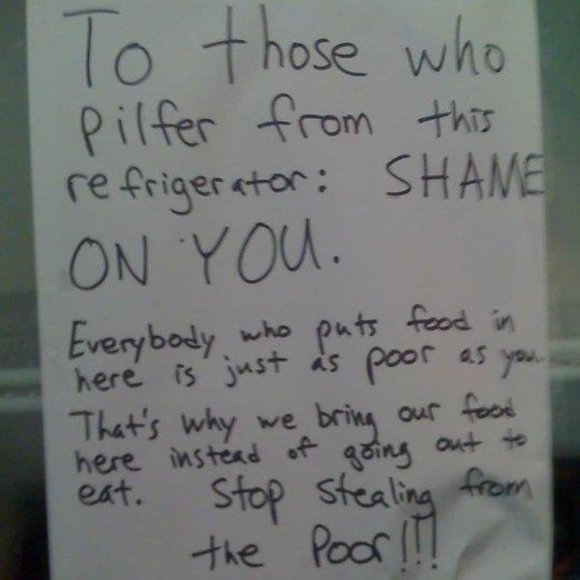 To those who
pilfer from this
refrigerator: SHAME
ON YOU.
Everybody who puts food in
here is just as poor as you.
That's why we bring our food
here instead of going out to
eat. Stop Stealing from
the Poor!!!